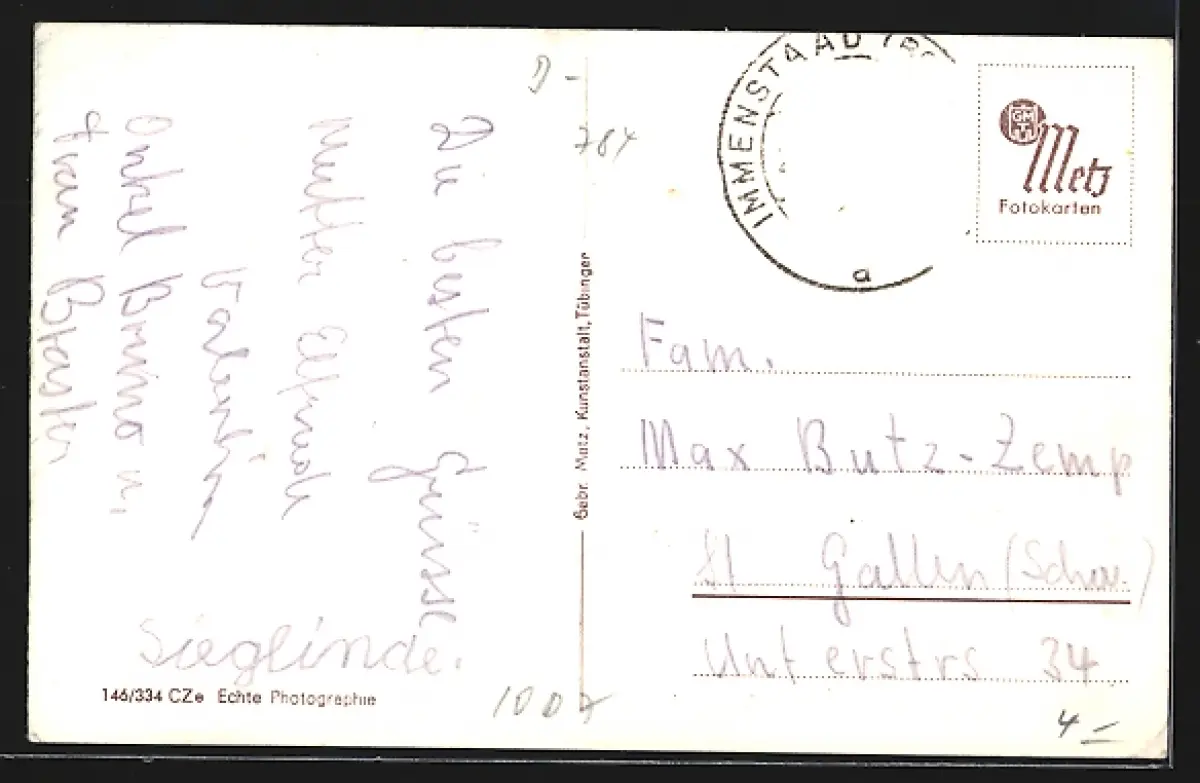 Die besten Grüsse
Mutter Elfriede
Valentin
Onkel Bruno u.
Frau
Sieglinde.
146/334 CZe Echte Photographie
Gebr. Metz, Kunstanstalt, Tübingen
784
1007
IMMENSTAAD
a
GM
Metz
Fotokarten
Fam.
Max Butz-Zemp
St Gallen (Schw.)
Unterstrs 34
4 –